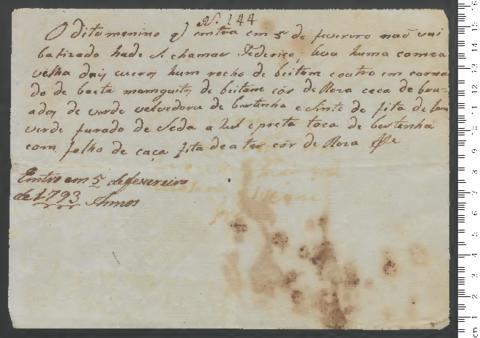 N. 144
O dito menino q entra em 5 de fevereiro naõ vai
batizado hade se chamar Federico, leva huma camiza
velha dois cueros hum rocho de beitam e outro em carna
do de baeta manguitos de beitam côr de Roza ceca de
de verde volvedoura de bertanha e sinte de fita de
verde furado de Seda a zul e preta toca de bertanha
com folho de caça fita de a tar côr de Roza
Emtro em 5 de fevereiro
de 1793 Annos